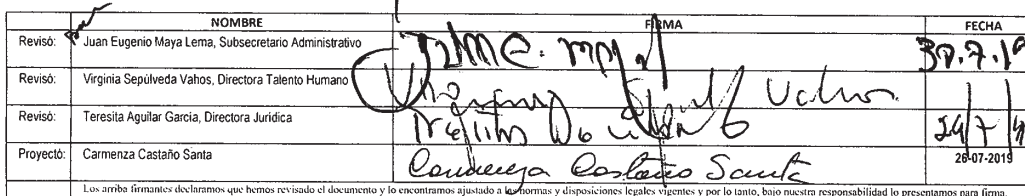 NOMBRE FIRMA FECHA
Revisó: Juan Eugenio Maya Lema, Subsecretario Administrativo 30.7.19
Revisó: Virginia Sepúlveda Vahos, Directora Talento Humano
Revisó: Teresita Aguilar García, Directora Jurídica
Proyectó: Carmenza Castaño Santa Carmenza Castaño Santa 26-07-2019
Los arriba firmantes declaramos que hemos revisado el documento y lo encontramos ajustado a las normas y disposiciones legales vigentes y por lo tanto, bajo nuestra responsabilidad lo presentamos para firma.